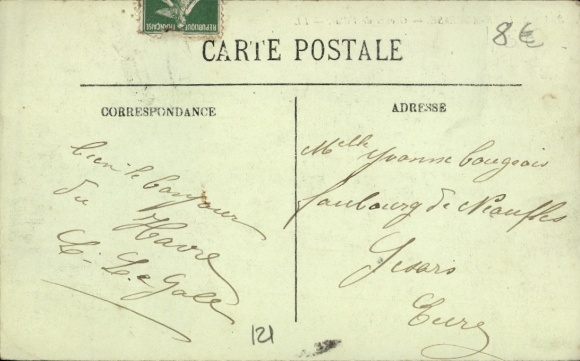 RÉPUBLIQUE FRANÇAISE
8 €
CARTE POSTALE
CORRESPONDANCE
ADRESSE
bien le bonjour
du Havre
L. Le Gall
Melle Yvonne Bougeois
faubourg de Neaufles
Gisors
Eure
121